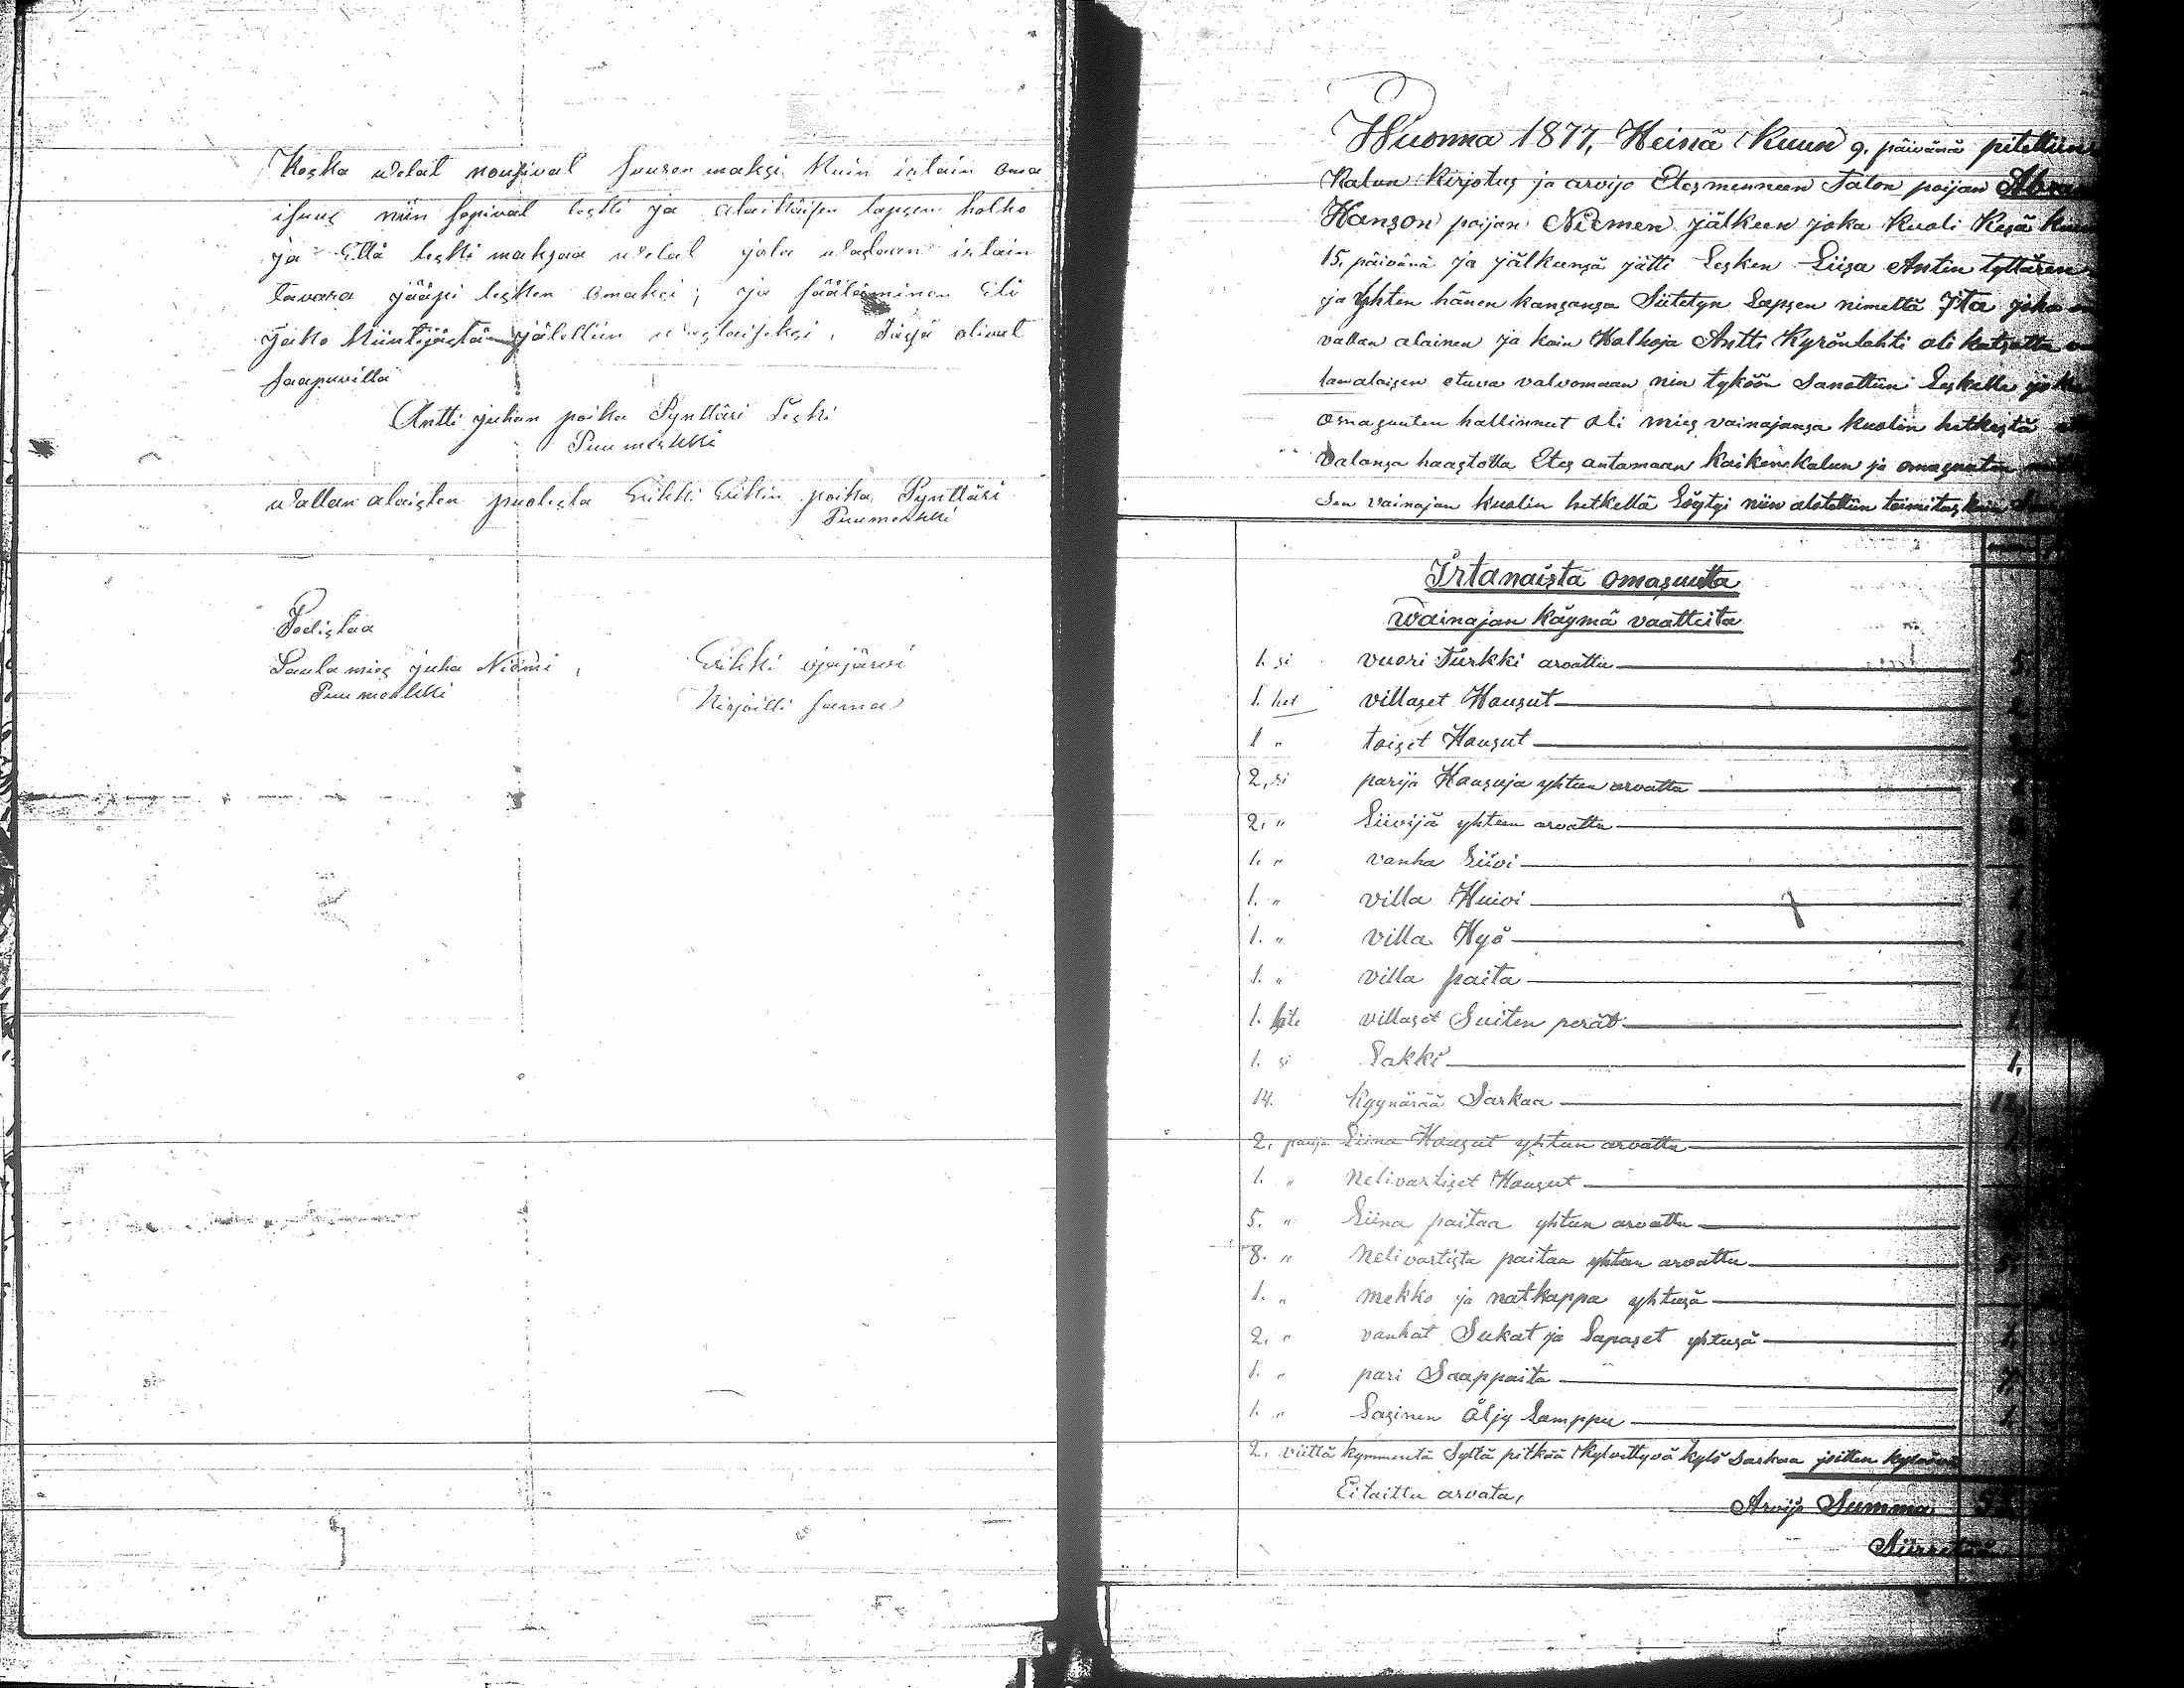 Koska Velat nousivat suuremmaksi kuin irtain oma
isuus niin sopivat leski ja alaikäisen lapsen holho
ja Että leski maksaa velat jota vastaan irtain
tavara jääpi lesken omaksi; ja säätäminen Eli
jako kiintijästä jätettiin vastaiseksi. Täsä olivat
saapuvilla
Antti juhan poika Pynttäri Leski
Puumerkki
Vallan alaisten puolesta Erikki Erikin poika Pynttäri
Puumerkki
Todistaa
Lautamies juha Niemi,
Puumerkki
Erikki
Kirjoitti sama
Wuonna 1877, Heinä Kuun 9. päivänä pitettiin
Kalun Kirjotus ja arvijo Etesmenneen Talon poijan
Hanson poijan Niemen jälkeen joka Kuoli Kesä kuun
15. päivänä ja jälkeensä jätti Lesken Liisa Antin tyttären
ja Yhten hänen kansansa Siitetyn Lapsen nimeltä Ita joka
vallan alainen ja kuin Holhoja Antti Kyrönlahti oli katsottu
etuva valvomaan niin tykön Sanottiin Leskelle joka
Omasuuten hallinnut oli mies vainajansa kuolin hetkestä
Valansa haastolla Etes antamaan kaiken kalun ja omasuuten
Sen vainajan kuolin hetkellä Löytyi niin alotettiin toimitus
Irtanaista omasuutta
Wainajan käymä vaatteita
1. si vuori Turkki arvattu 5.
1. het villaset Housut 2
1 " toiset Housut
2, si parija Housuja yhteen arvattu
2. " Liivijä yhteen arvattu
1. " vanha Liivi
1. " villa Huivi 1.
1. " villa Vyö
1. " villa paita
1. villaset Suiten perät 1.
1. si Lakki 1.
14. Kyynärää Sarkaa
2. parija Liina Housut yhteen arvattu
1. " Nelivartiset Housut
5. " Liina paitaa yhteen arvattu
8. " Nelivartista paitaa yhteen arvattu 5.
1. " mekko ja natkappa yhtesä
2. " vanhat Sukat ja Lapaset yhtesä 1.
1. " pari Saappaita 7.
1. " Lasinen Öljy Lamppu 1.
2. viittä kymmentä Syltä pitkää Kylvettyvä kylö Sarkaa joitten
Ei taittu arvata,
Arvijo Summa
Siirretään